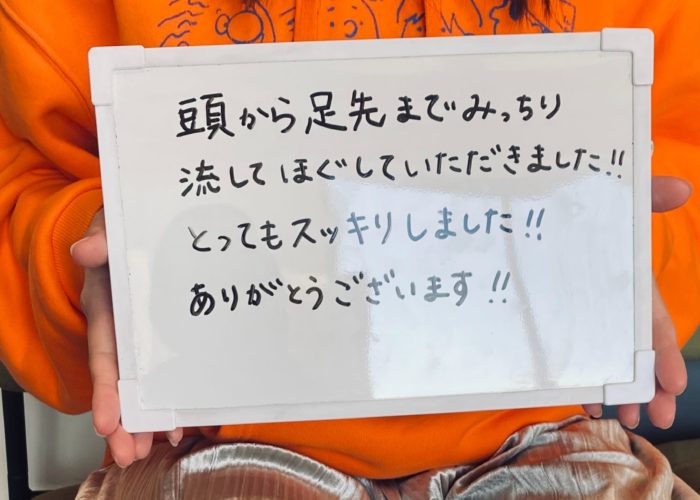 頭から足先までみっちり
流してほぐしていただきました!!
とってもスッキリしました!!
ありがとうございます!!